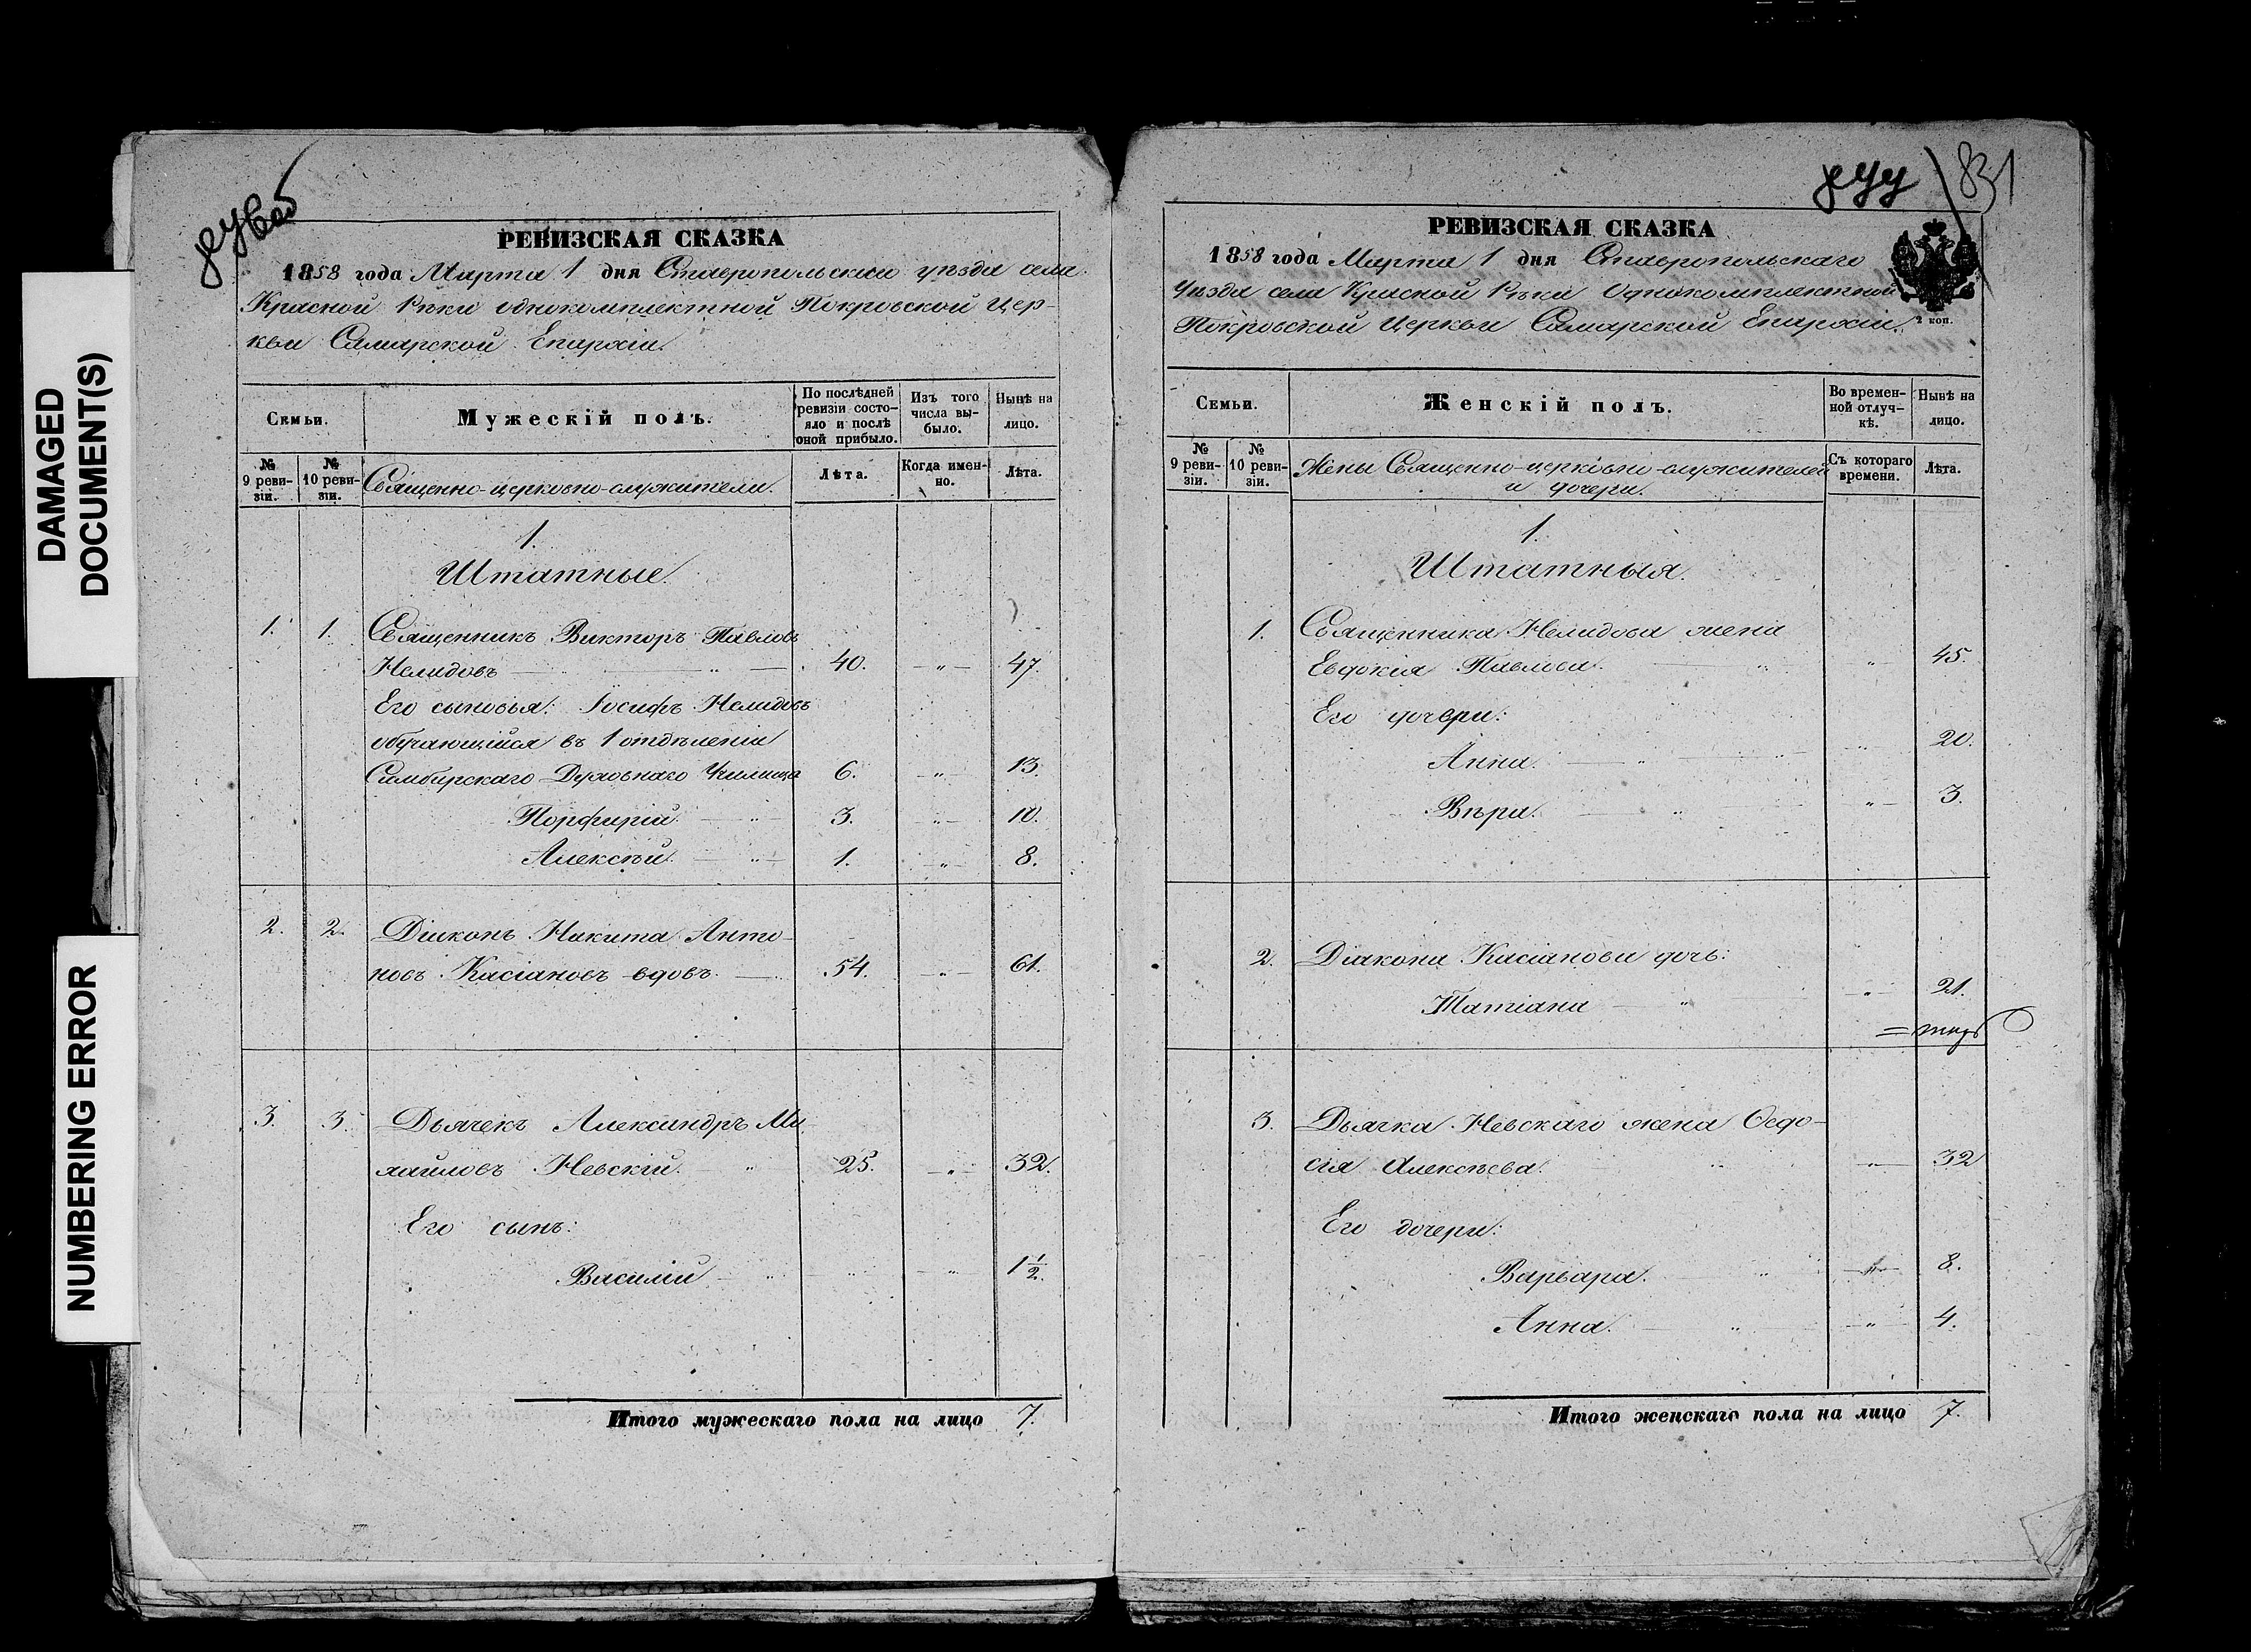 DAMAGED
DOCUMENT(S)
NUMBERING ERROR
РЕВИЗСКАЯ СКАЗКА
1858 года Марта 1 дня Ставропольскаго уѣзда села
Красной Рѣки однокомплектной Покровской Цер-
кви Самарской Епархіи.
Семьи.
Мужескій полъ.
По послѣдней ревизіи состо-яло и послѣ оной прибыло.
Изъ того числа вы-было.
Нынѣ на лицо.
№ 9 реви-зіи.
№ 10 реви-зіи.
Священно-церковно-служители.
Лѣта.
Когда имен-но.
Лѣта.
1.
Штатные.
1. 1. Священникъ Викторъ Павловъ
Нелидовъ — „ — 40. — „ — 47.
Его сыновья: Іосифъ Нелидовъ
обучающійся въ 1 отдѣленіи
Симбирскаго Духовнаго Училища 6. — „ — 13.
Порфирій. — „ — 3. — „ — 10.
Алексѣй. — „ — 1. — „ — 8.
2. 2. Діаконъ Никита Анто-
новъ Касіановъ вдовъ. — 54. — „ — 61.
3. 3. Дьячекъ Александръ Ми-
хайловъ Невскій. „ 25. — „ — 32.
Его сынъ:
Василій — „ „ — „ 1 1/2.
Итого мужескаго пола на лицо 7.
831
РЕВИЗСКАЯ СКАЗКА
1858 года Марта 1 дня Ставропольскаго
Уѣзда села Красной Рѣки Однокомплектной
Покровской Церкви Самарской Епархіи.
2 коп.
Семьи.
Женскій полъ.
Во времен-ной отлуч-кѣ.
Нынѣ на лицо.
№ 9 реви-зіи.
№ 10 реви-зіи.
Жены Священно-церковно-служителей
и дочери.
Съ котораго времени.
Лѣта.
1.
Штатныя.
1. Священника Нелидова жена
Евдокія Павлова. „ „ 45.
Его дочери:
Анна. — „ — „ — „ 20.
Вѣра. — „ „ — 3.
2. Діакона Касіанова дочь:
Татіана — „ — „ — 21.
3. Дьячка Невскаго жена Ѳедо-
сія Алексѣева. „ — „ — 32
Его дочери:
Варвара. „ — „ — 8.
Анна. — „ — „ — 4.
Итого женскаго пола на лицо 7.